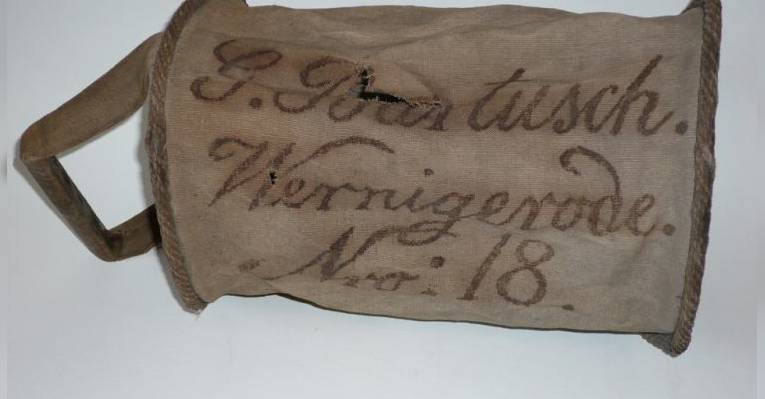 G. Bartusch.
Wernigerode.
Nro: 18.